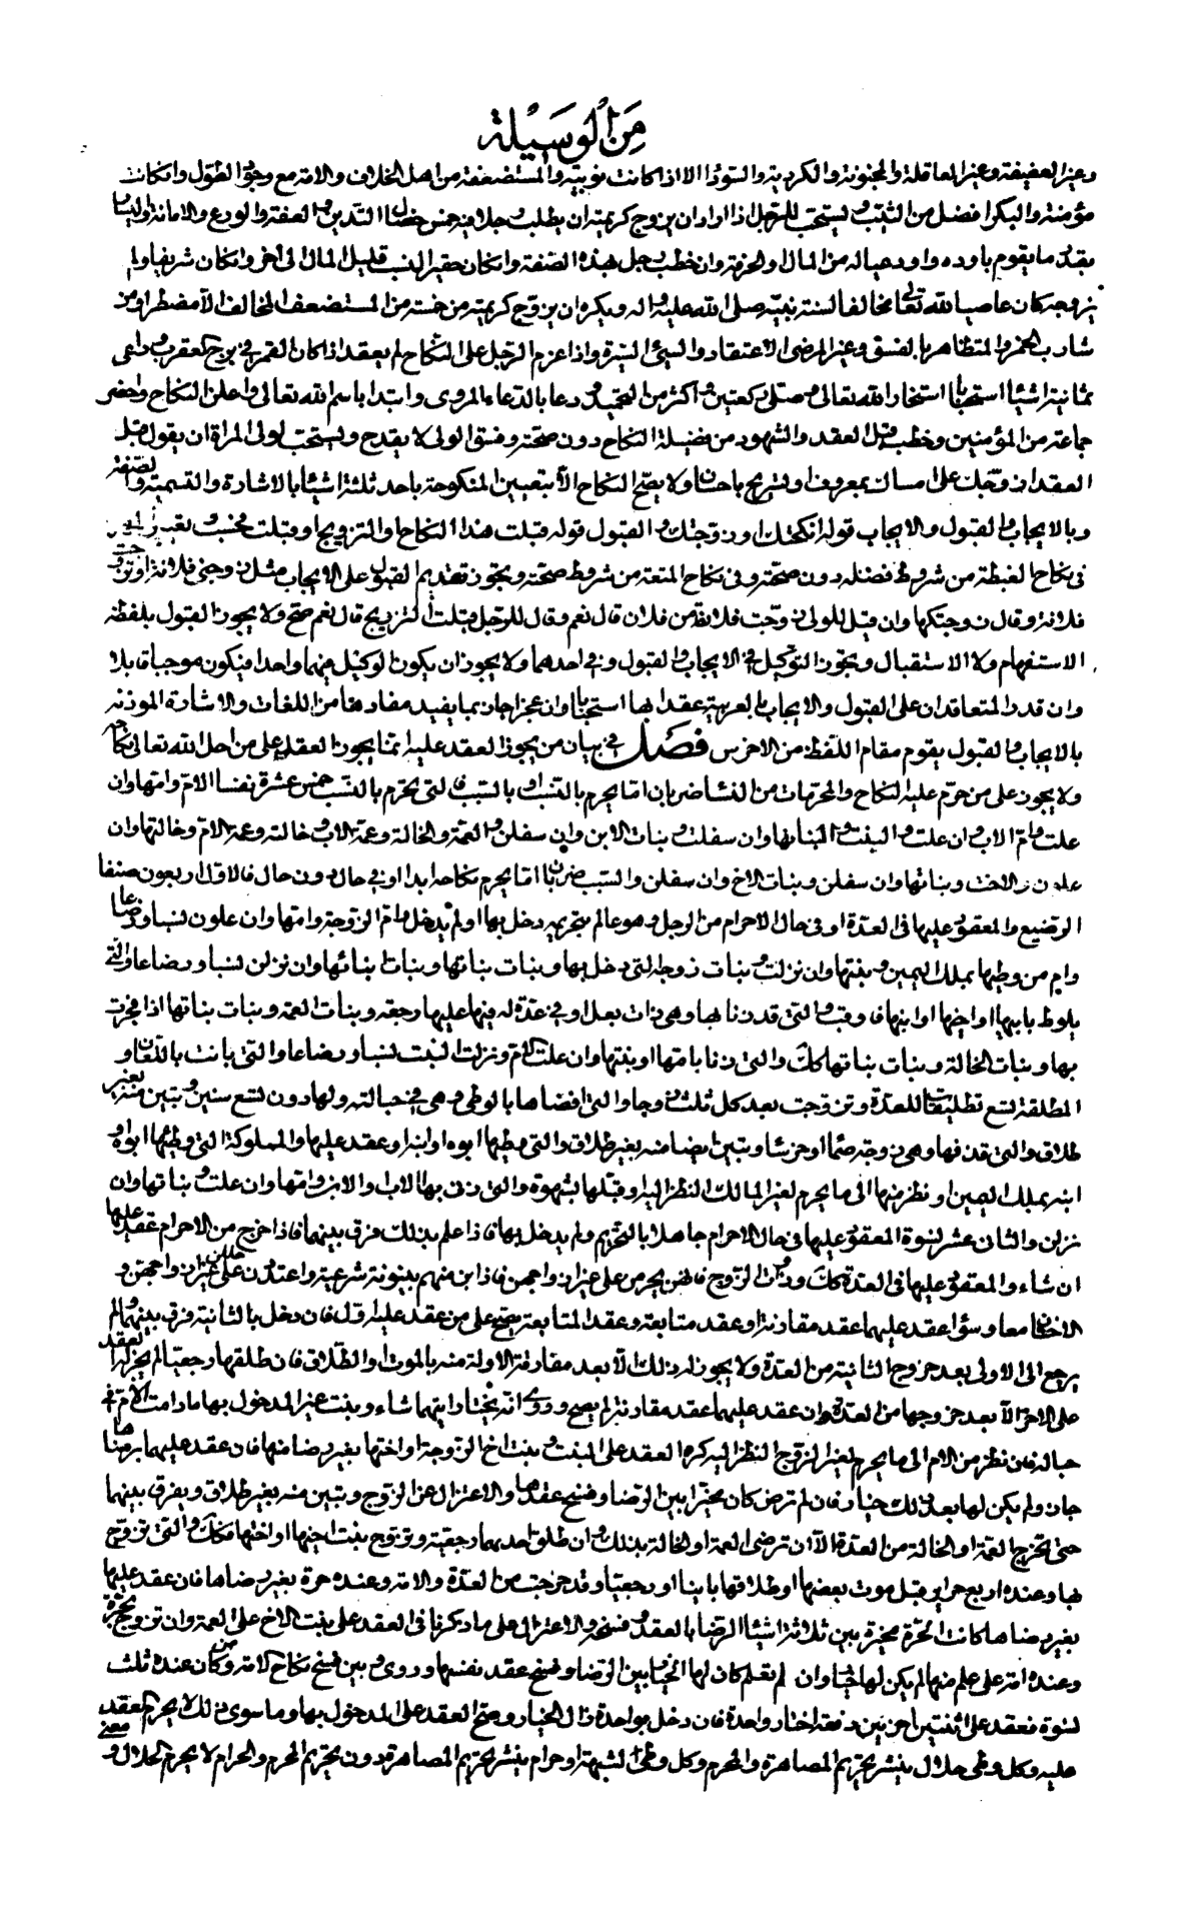 مِنَ الْوَسِيْلَة
وغير العفيفة وغير العاقلة والمجنونة والكردية والسوداء الا اذا كانت نوبية والمستضعفة من اهل الخلاف والامة مع وجود الطول وان كانت
مؤمنة والبكر افضل من الثيب ويستحب للرجل اذا اراد ان يزوج كريمته ان يطلب رجلا فيه خمس خصال التدين والعفة والورع والامانة واليسار
بقدر ما يقوم باوده واود عياله من المال والحرفة وان خطب رجل بهذه الصفة وان كان حقير النسب قليل المال الى آخر وان كان شريفا ولم
يزوجه كان عاصيا لله تعالى مخالفا لسنة نبيه صلى الله عليه واله ويكره ان يزوج كريمته من خمسة من المستضعف المخالف الا مضطرا ومن
شارب الخمر والمتظاهر بالفسق وغير المرضى الاعتقاد والسيئ السيرة واذا عزم الرجل على النكاح لم يعقد اذا كان القمر في برج العقرب وراعى
ثمانية اشياء استحبابا استخار الله تعالى وصلى ركعتين واكثر من التحميد ودعا بالدعاء المروى وابتدا باسم الله تعالى واعلن النكاح واحضر
جماعة من المؤمنين وخطب قبل العقد والشهود من فضيلة النكاح دون صحته وفسق الولى لا يقدح ويستحب لولى المراة ان يقول قبل
العقد ازوجك على امساك بمعروف او تسريح باحسان ولا يصح النكاح الا بتعيين المنكوحة باحد ثلثة اشياء بالاشارة والتسمية والصفة
وبالايجاب والقبول والايجاب قوله انكحتك او زوجتك والقبول قوله قبلت هذا النكاح والتزويج او قبلت فحسب
فى نكاح الغبطة من شروط فضله دون صحته وفى نكاح المتعة من شروط صحته ويجوز تقديم القبول على الايجاب مثل زوجنى فلانة او تزوجت
فلانة وقال زوجتكها وان قيل للولى زوجت فلانة من فلان قال نعم وقال للرجل قبلت التزويج قال نعم صح ولا يجوز القبول بلفظة
الاستفهام ولا الاستقبال ويجوز التوكيل فى الايجاب والقبول وفى احدهما ولا يجوز ان يكون الوكيل فيهما واحدا فيكون موجبا قابلا
وان قدر المتعاقدان على القبول والايجاب بالعربية عقد بها استحبابا وان عجزا جاز بما يفيد مفادها من اللغات والاشارة الموذنة
بالايجاب والقبول يقوم مقام اللفظ من الاخرس فصل فى بيان من يجوز العقد عليه انما يجوز العقد على من احل الله تعالى نكاحه
ولا يجوز على من حرم عليه النكاح والمحرمات من النساء ضربان اما يحرم بالنسب او بالسبب فالتى يحرم بالنسب خمس عشرة نفسا الام وامها وان
علت وام الاب وان علت والبنت وبناتها وان سفلت وبنات الابن وان سفلن والعمة والخالة وعمة الاب وخالته وعمة الام وخالتها وان
علون والاخت وبناتها وان سفلن وبنات الاخ وان سفلن والسبب ضربان اما يحرم نكاحه ابدا او فى حال دون حال فالاول اربعون صنفا
الرضيع والمعقود عليها فى العدة او فى حال الاحرام من الرجل وهو عالم بتحريمه دخل بها او لم يدخل وام الزوجة وامها وان علون نسبا ورضاعا
وام من وطيها بملك اليمين وبنتها وان نزلت وبنات زوجة التى دخل بها وبنات بناتها وبنات بنائها وان نزلن نسبا ورضاعا والتى
يلوط بابيها او اخيها او ابنها والتى قد زنا بها وهى ذات بعل او فى عدة له فيها عليها رجعة وبنات العمة وبنات بناتها اذا فجرت
بها وبنات الخالة وبنات بناتها كك والتى زنا بامها او بنتها وان علت الام ونزلت البنت نسبا ورضاعا والتى بانت باللعان و
المطلقة لتسع تطليقات للعدة وتزوجت بعد كل ثلث زوجا والتى افضاها بالوطى وهى فى حبالته ولها دون تسع سنين وتبين منه بغير
طلاق والتى قذفها وهى زوجة صماء او خرساء وتبين ايضا منه بغير طلاق والتى وطيها ابوه او ابنه او عقد عليها والمملوكة التى وطئها ابوه او
ابنه بملك اليمين او نظر منها الى ما يحرم لغير المالك النظر اليه او قبلها بشهوة والتى زنى بها الاب والابن وامها وان علت وبناتها وان
نزلن والثانى عشر نسوة المعقود عليها فى حال الاحرام جاهلا بالتحريم ولم يدخل بها فاذا علم بذلك فرق بينهما فاذا خرج من الاحرام عقد عليها
ان شاء والمعقود عليها فى العدة كك وذوات الزوج فانهن يحرمن على غير ازواجهن فاذا ابن منهم بينونة شرعية واعتددن حللن على غير ازواجهن و
الاختان معا وسواء عقد عليهما عقد مقارنة او عقد متابعة وعقد المتابعة يصح على من عقد عليه اولا فان دخل بالثانية فرق بينهما ولم
يرجع الى الاولى بعد خروج الثانية من العدة ولا يجوز له ذلك الا بعد مفارقة الاولة منه بالموت او الطلاق فان طلقها رجعيا لم يجز له العقد
على الاخرى الا بعد خروجها من العدة وان عقد عليهما عقد مقارنة لم يصح وروى انه يختار ايتهما شاء وبنت غير المدخول بها ما دامت الام فى
حباله فان نظر من الام الى ما يحرم لغير الزوج النظر اليه كره العقد على البنت وبنت اخ الزوجة او اختها بغير رضا منها فان عقد عليهما برضاها
جاز ولم يكن لها بعد ذلك خيار فان لم ترض كان مخيرا بين الرضا وفسخ عقدها والاعتزال عن الزوج وتبين منه بغير طلاق ويفرق بينهما
حتى تخرج العمة او الخالة من العدة الا ان ترضى العمة او الخالة بذلك وان طلق احديهما رجعية وتزوج بنت اخيها او اختها فكك والتى تزوج
بها وعنده اربع حراير قبل موت بعضها او طلاقها باينا او رجعيا وقد خرجت من العدة والامة وعنده حرة بغير رضاها فان عقد عليها
بغير رضاها كانت الحرة مخيرة بين ثلاثة اشياء الرضا بالعقد وفسخه والاعتزال على ما ذكرنا فى العقد على بنت الاخ على العمة وان تزوج بحرة
وعنده امة على علم منها لم يكن لها خيار وان لم تعلم كان لها الخيار بين الرضا وفسخ عقد نفسها وروى وبين فسخ نكاح الامة ومن كان عنده ثلث
نسوة فعقد على اثنتين اخريين دفعة اختار واحدة فان دخل بواحدة زال الخيار وصح العقد على المدخول بها وما سوى ذلك لا يحرم العقد
عليه وكل وطى حلال ينشر تحريم المصاهرة والمحرم وكل وطئ لشبهة او حرام ينشر تحريم المصاهرة دون تحريم المحرم والحرام لا يحرم الحلال و